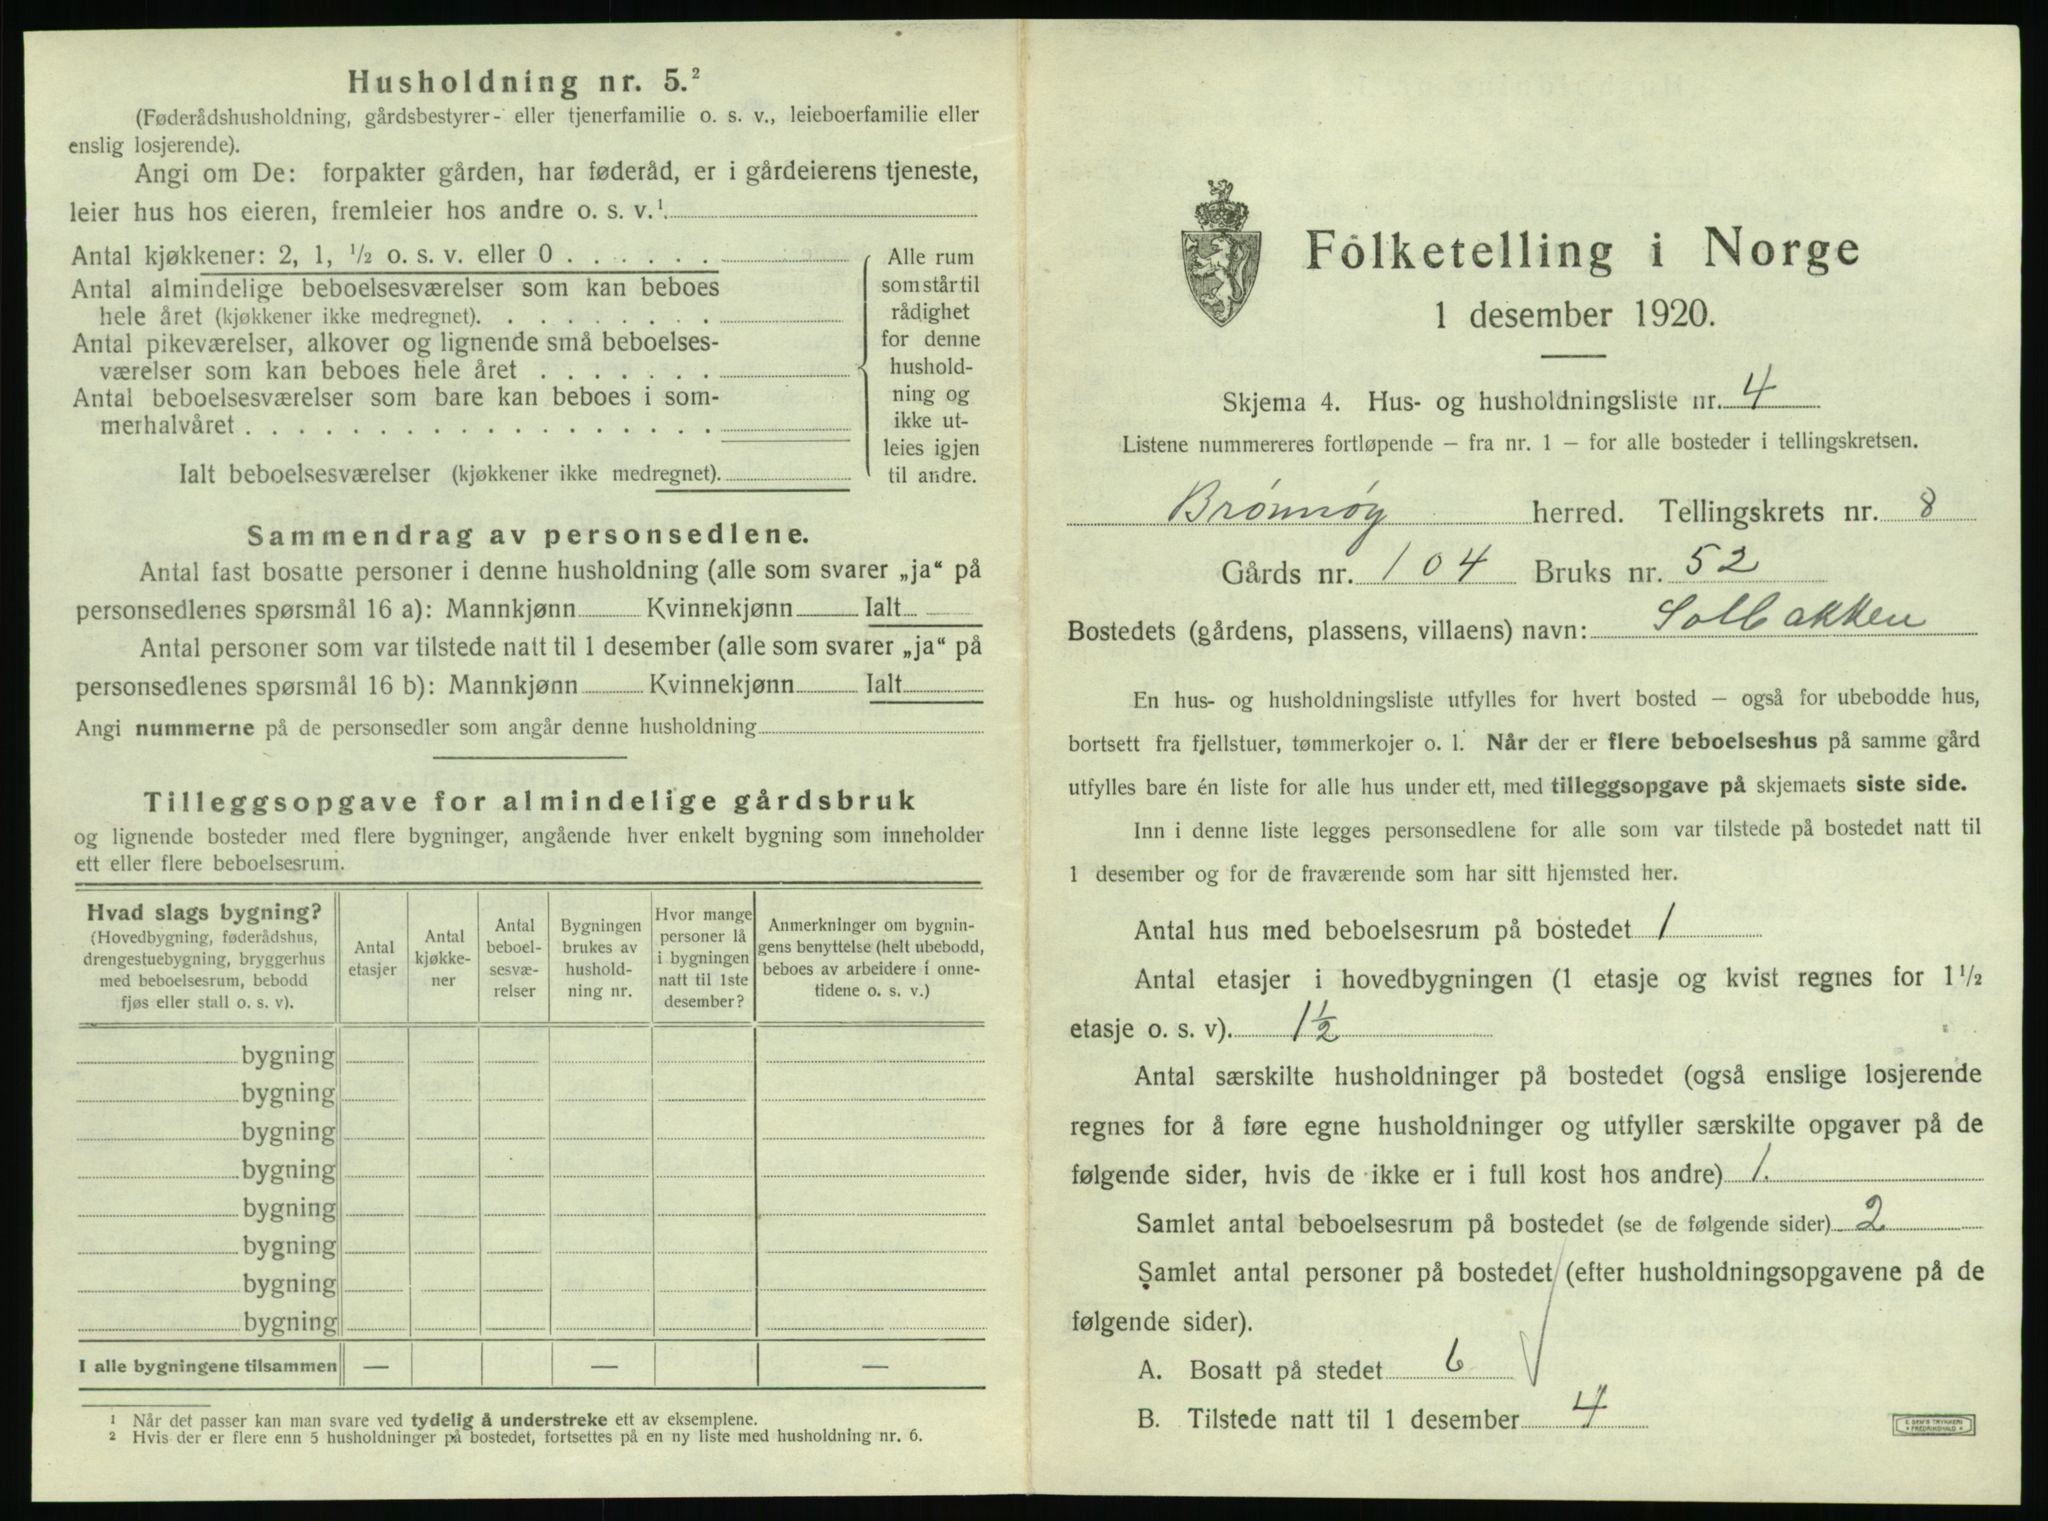 Husholdning nr. 5.²
(Føderådshusholdning, gårdsbestyrer- eller tjenerfamilie o. s. v., leieboerfamilie eller
enslig losjerende).
Angi om De: forpakter gården, har føderåd, er i gårdeierens tjeneste,
leier hus hos eieren, fremleier hos andre o. s. v.¹.
Antal kjøkkener: 2, 1, ½ o. s. v. eller 0 . . . . . .
Antal almindelige beboelsesværelser som kan beboes
hele året (kjøkkener ikke medregnet). . . . . . . . .
Antal pikeværelser, alkover og lignende små beboelses-
værelser som kan beboes hele året . . . . . . .
Antal beboelsesværelser som bare kan beboes i som-
merhalvåret . . . . . . . . . . . . . . . . . .
Ialt beboelsesværelser (kjøkkener ikke medregnet).
Alle rum
som står til
rådighet
for denne
hushold-
ning og
ikke ut-
leies igjen
til andre.
Sammendrag av personsedlene.
Antal fast bosatte personer i denne husholdning (alle som svarer „ja“ på
personsedlenes spørsmål 16 a): Mannkjønn Kvinnekjønn Ialt
Antal personer som var tilstede natt til 1 desember (alle som svarer „ja“ på
personsedlenes spørsmål 16 b): Mannkjønn Kvinnekjønn Ialt
Angi nummerne på de personsedler som angår denne husholdning
Tilleggsopgave for almindelige gårdsbruk
og lignende bosteder med flere bygninger, angående hver enkelt bygning som inneholder
ett eller flere beboelsesrum.
Hvad slags bygning?
(Hovedbygning, føderådshus,
drengestuebygning, bryggerhus
med beboelsesrum, bebodd
fjøs eller stall o. s. v).
Antal
etasjer
Antal
kjøkke-
ner
Antal
beboel-
sesvæ-
relser
Bygningen
brukes av
hushold-
ning nr.
Hvor mange
personer lå
i bygningen
natt til 1ste
desember?
Anmerkninger om bygnin-
gens benyttelse (helt ubebodd,
beboes av arbeidere i onne-
tidene o. s. v.)
bygning
bygning
bygning
bygning
bygning
bygning
bygning
bygning
I alle bygningene tilsammen — — —
¹ Når det passer kan man svare ved tydelig å understreke ett av eksemplene.
² Hvis der er flere enn 5 husholdninger på bostedet, fortsettes på en ny liste med husholdning nr. 6.
Folketelling i Norge
1 desember 1920.
Skjema 4. Hus- og husholdningsliste nr. 4
Listene nummereres fortløpende – fra nr. 1 – for alle bosteder i tellingskretsen.
Brønnøy herred. Tellingskrets nr. 8
Gårds nr. 104 Bruks nr. 52
Bostedets (gårdens, plassens, villaens) navn: Solbakken
En hus- og husholdningsliste utfylles for hvert bosted – også for ubebodde hus,
bortsett fra fjellstuer, tømmerkojer o. l. Når der er flere beboelseshus på samme gård
utfylles bare én liste for alle hus under ett, med tilleggsopgave på skjemaets siste side.
Inn i denne liste legges personsedlene for alle som var tilstede på bostedet natt til
1 desember og for de fraværende som har sitt hjemsted her.
Antal hus med beboelsesrum på bostedet 1
Antal etasjer i hovedbygningen (1 etasje og kvist regnes for 1½
etasje o. s. v). 1½
Antal særskilte husholdninger på bostedet (også enslige losjerende
regnes for å føre egne husholdninger og utfyller særskilte opgaver på de
følgende sider, hvis de ikke er i full kost hos andre) 1.
Samlet antal beboelsesrum på bostedet (se de følgende sider) 2
Samlet antal personer på bostedet (efter husholdningsopgavene på de
følgende sider).
A. Bosatt på stedet 6
B. Tilstede natt til 1 desember 4